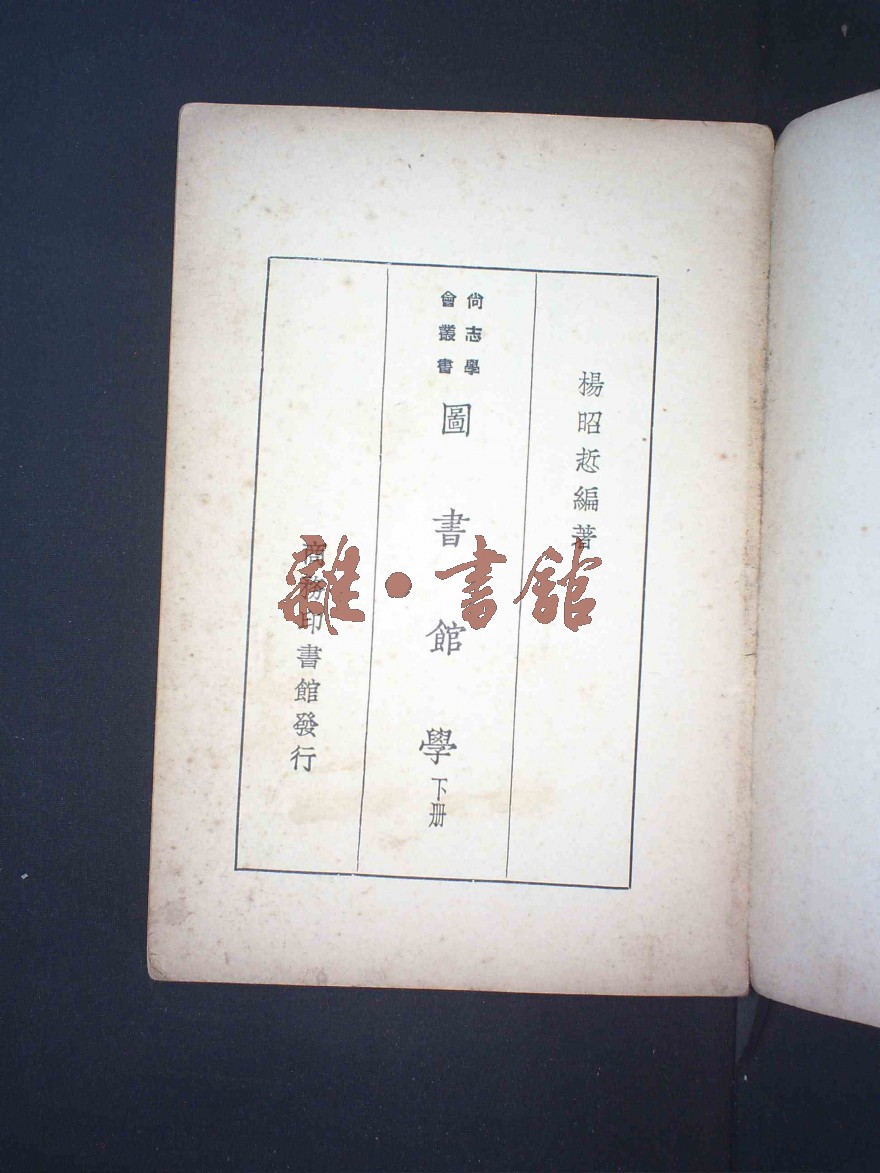 楊昭悊編著
尚志學
會叢書
圖書館學下册
商務印書館發行
雜·書館